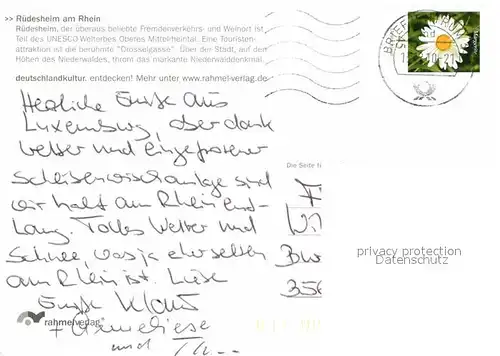 >> Rüdesheim am Rhein
Rüdesheim, der überaus beliebte Fremdenverkehrs- und Weinort ist
Teil des UNESCO Welterbes Oberes Mittelrheintal. Eine Touristen-
attraktion ist die berühmte "Drosselgasse". Über der Stadt, auf den
Höhen des Niederwaldes, thront das markante Niederwalddenkmal.
deutschlandkultur. entdeckt! Mehr unter www.rahmel-verlag.de
Herzliche Grüße aus
Luxemburg, aber dank
Wetter und eingefrorener
Scheibenwischanlage sind
wir halt am Rhein ent-
lang. Tolles Wetter und
Schnee, was ja eher selten
am Rhein ist. Liebe
Grüße Klaus
+ Anneliese
und
Die Seite
356
privacy protection
Datenschutz
rahmelverlag
BRIEF